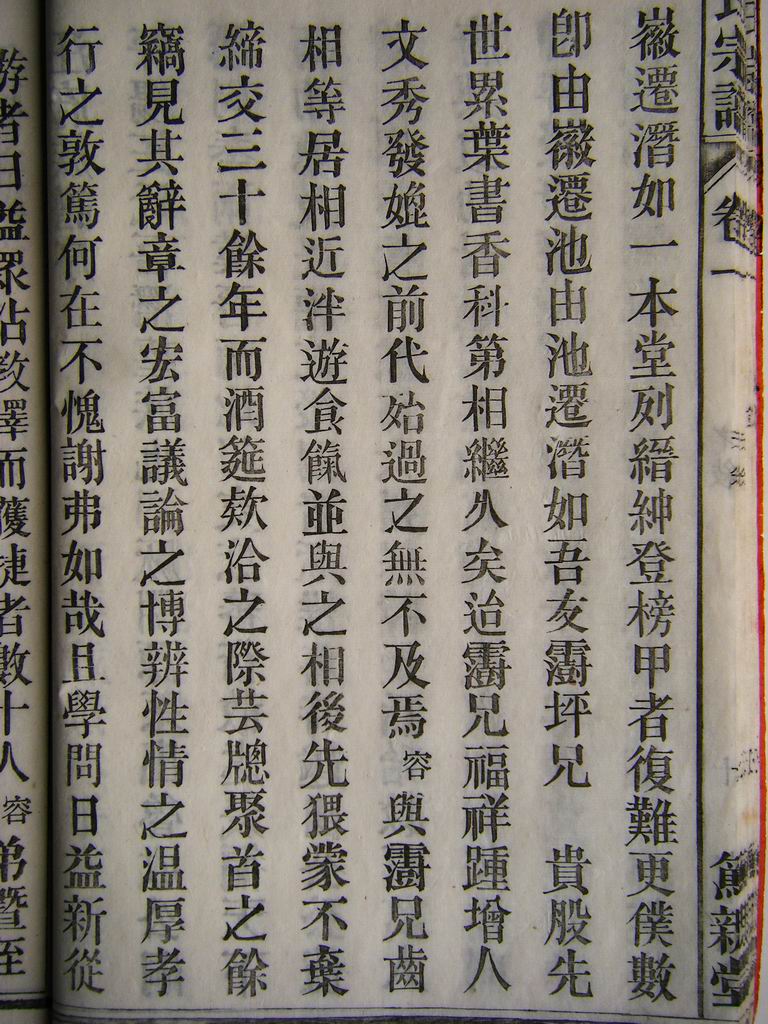 宗譜 卷一 篤親堂
徽遷潛如一本堂列縉紳登榜甲者復難更僕數
卽由徽遷池由池遷潛如吾友霌坪兄 貴股先
世累葉書香科第相繼久矣迨霌兄福祥踵增人
文秀發媲之前代始過之無不及焉容與霌兄齒
相等居相近泮遊食餼並與之相後先猥蒙不棄
締交三十餘年而酒筵欵洽之際芸牕聚首之餘
竊見其辭章之宏富議論之博辨性情之温厚孝
行之敦篤何在不愧謝弗如哉且學問日益新從
游者日益眾沾教澤而獲捷者數十人容弟暨至